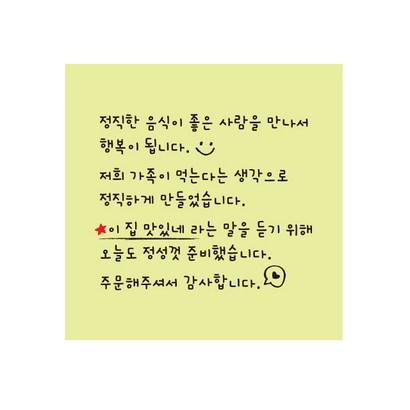 정직한 음식이 좋은 사람을 만나서
행복이 됩니다.
저희 가족이 먹는다는 생각으로
정직하게 만들었습니다.
이 집 맛있네 라는 말을 듣기 위해
오늘도 정성껏 준비했습니다.
주문해주셔서 감사합니다.